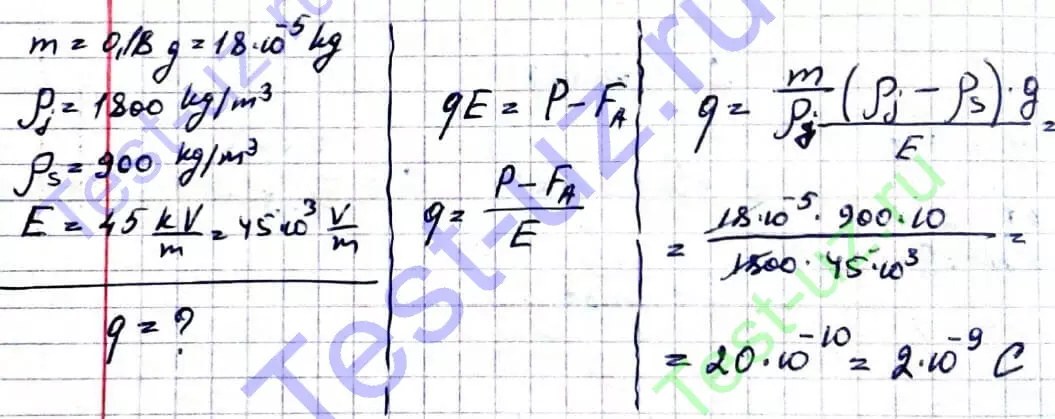 m = 0,18 g = 18·10⁻⁵ kg
ρⱼ = 1800 kg/m³
ρₛ = 900 kg/m³
E = 45 kV/m = 45·10³ V/m
q = ?
qE = P – F_A
q = (P – F_A)/E
q = (m/ρⱼ (ρⱼ – ρₛ)·g)/E =
= (18·10⁻⁵·900·10)/(1800·45·10³) =
= 20·10⁻¹⁰ = 2·10⁻⁹ C
Test-uz.ru
Test-uz.ru
Test-uz.ru